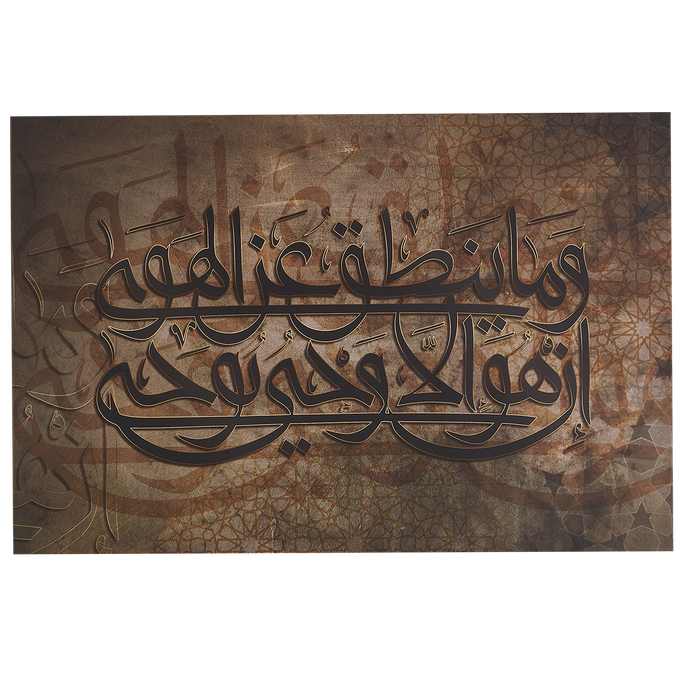 وَمَا يَنطِقُ عَنِ الْهَوَى
إِنْ هُوَ إِلَّا وَحْيٌ يُوحَى